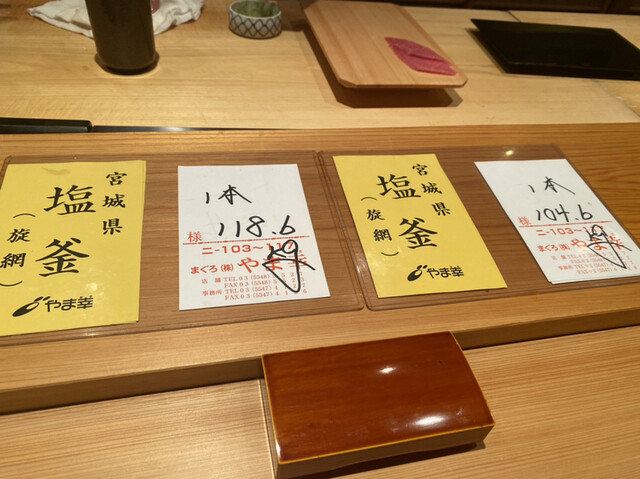 宮城県
塩釜
(旋網)
やま幸
1本
様 118.6
ニ-103~
まぐろ(株)やま幸
店舗 TEL 03(5548)
FAX 03(5548)
事務所 TEL 03(5547)
FAX 03(5547)
宮城県
塩釜
(旋網)
やま幸
1本
様 104.6
ニ-103~
まぐろ(株)やま